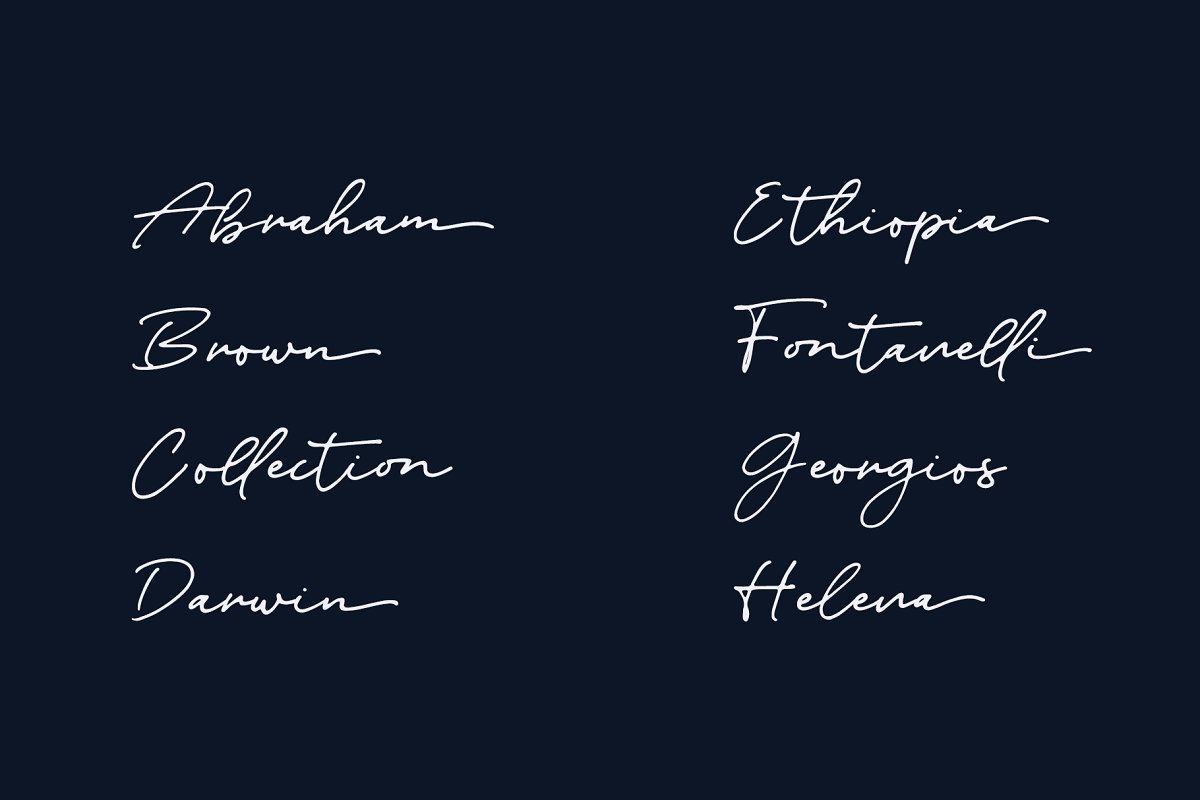 Abraham
Brown
Collection
Darwin
Ethiopia
Fontanelli
Georgios
Helena